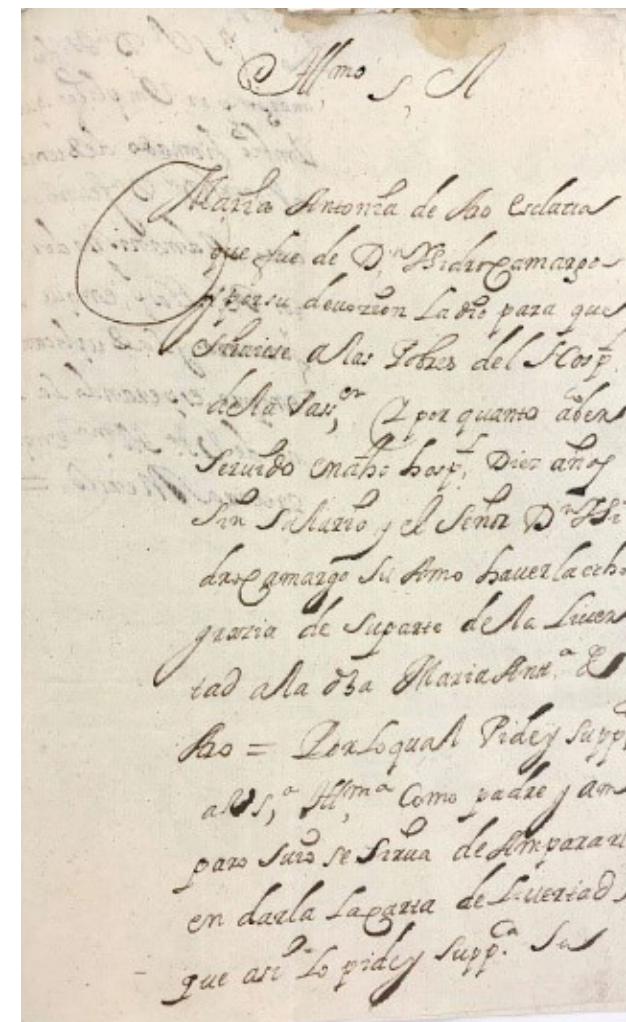 Illmo S.r
Maria Antonia de Rao Esclava
que fue de D.n Ysidro Camargo
y por su devocion la dio para que
Sirviese a las Pobres del Hosp.
de la Pass,on Y por quanto a ber
servido en dho hosp,l Diez años
sin salario y el Señor D.n Ysi
dro Camargo su Amo haverla echo
grazia de su parte de la Liver
tad a la dha Maria Ant.a de
Rao = Por lo qual Pide y supp
a V s,a Ill,ma Como padre y am
paro suio se sirva de Amparar
en darla la carta de Livertad
que asi lo pide y supp.ca